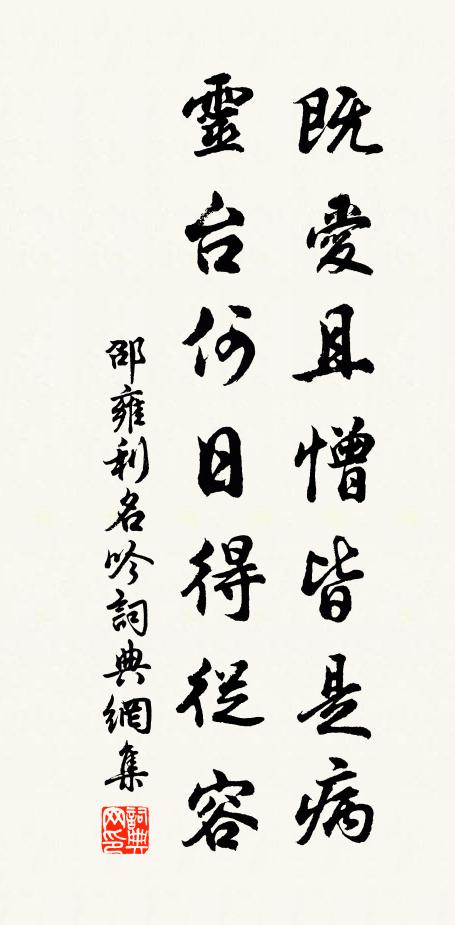 既愛且憎皆是病
靈台何日得從容
邵雍利名吟詞典網集
詞典網印